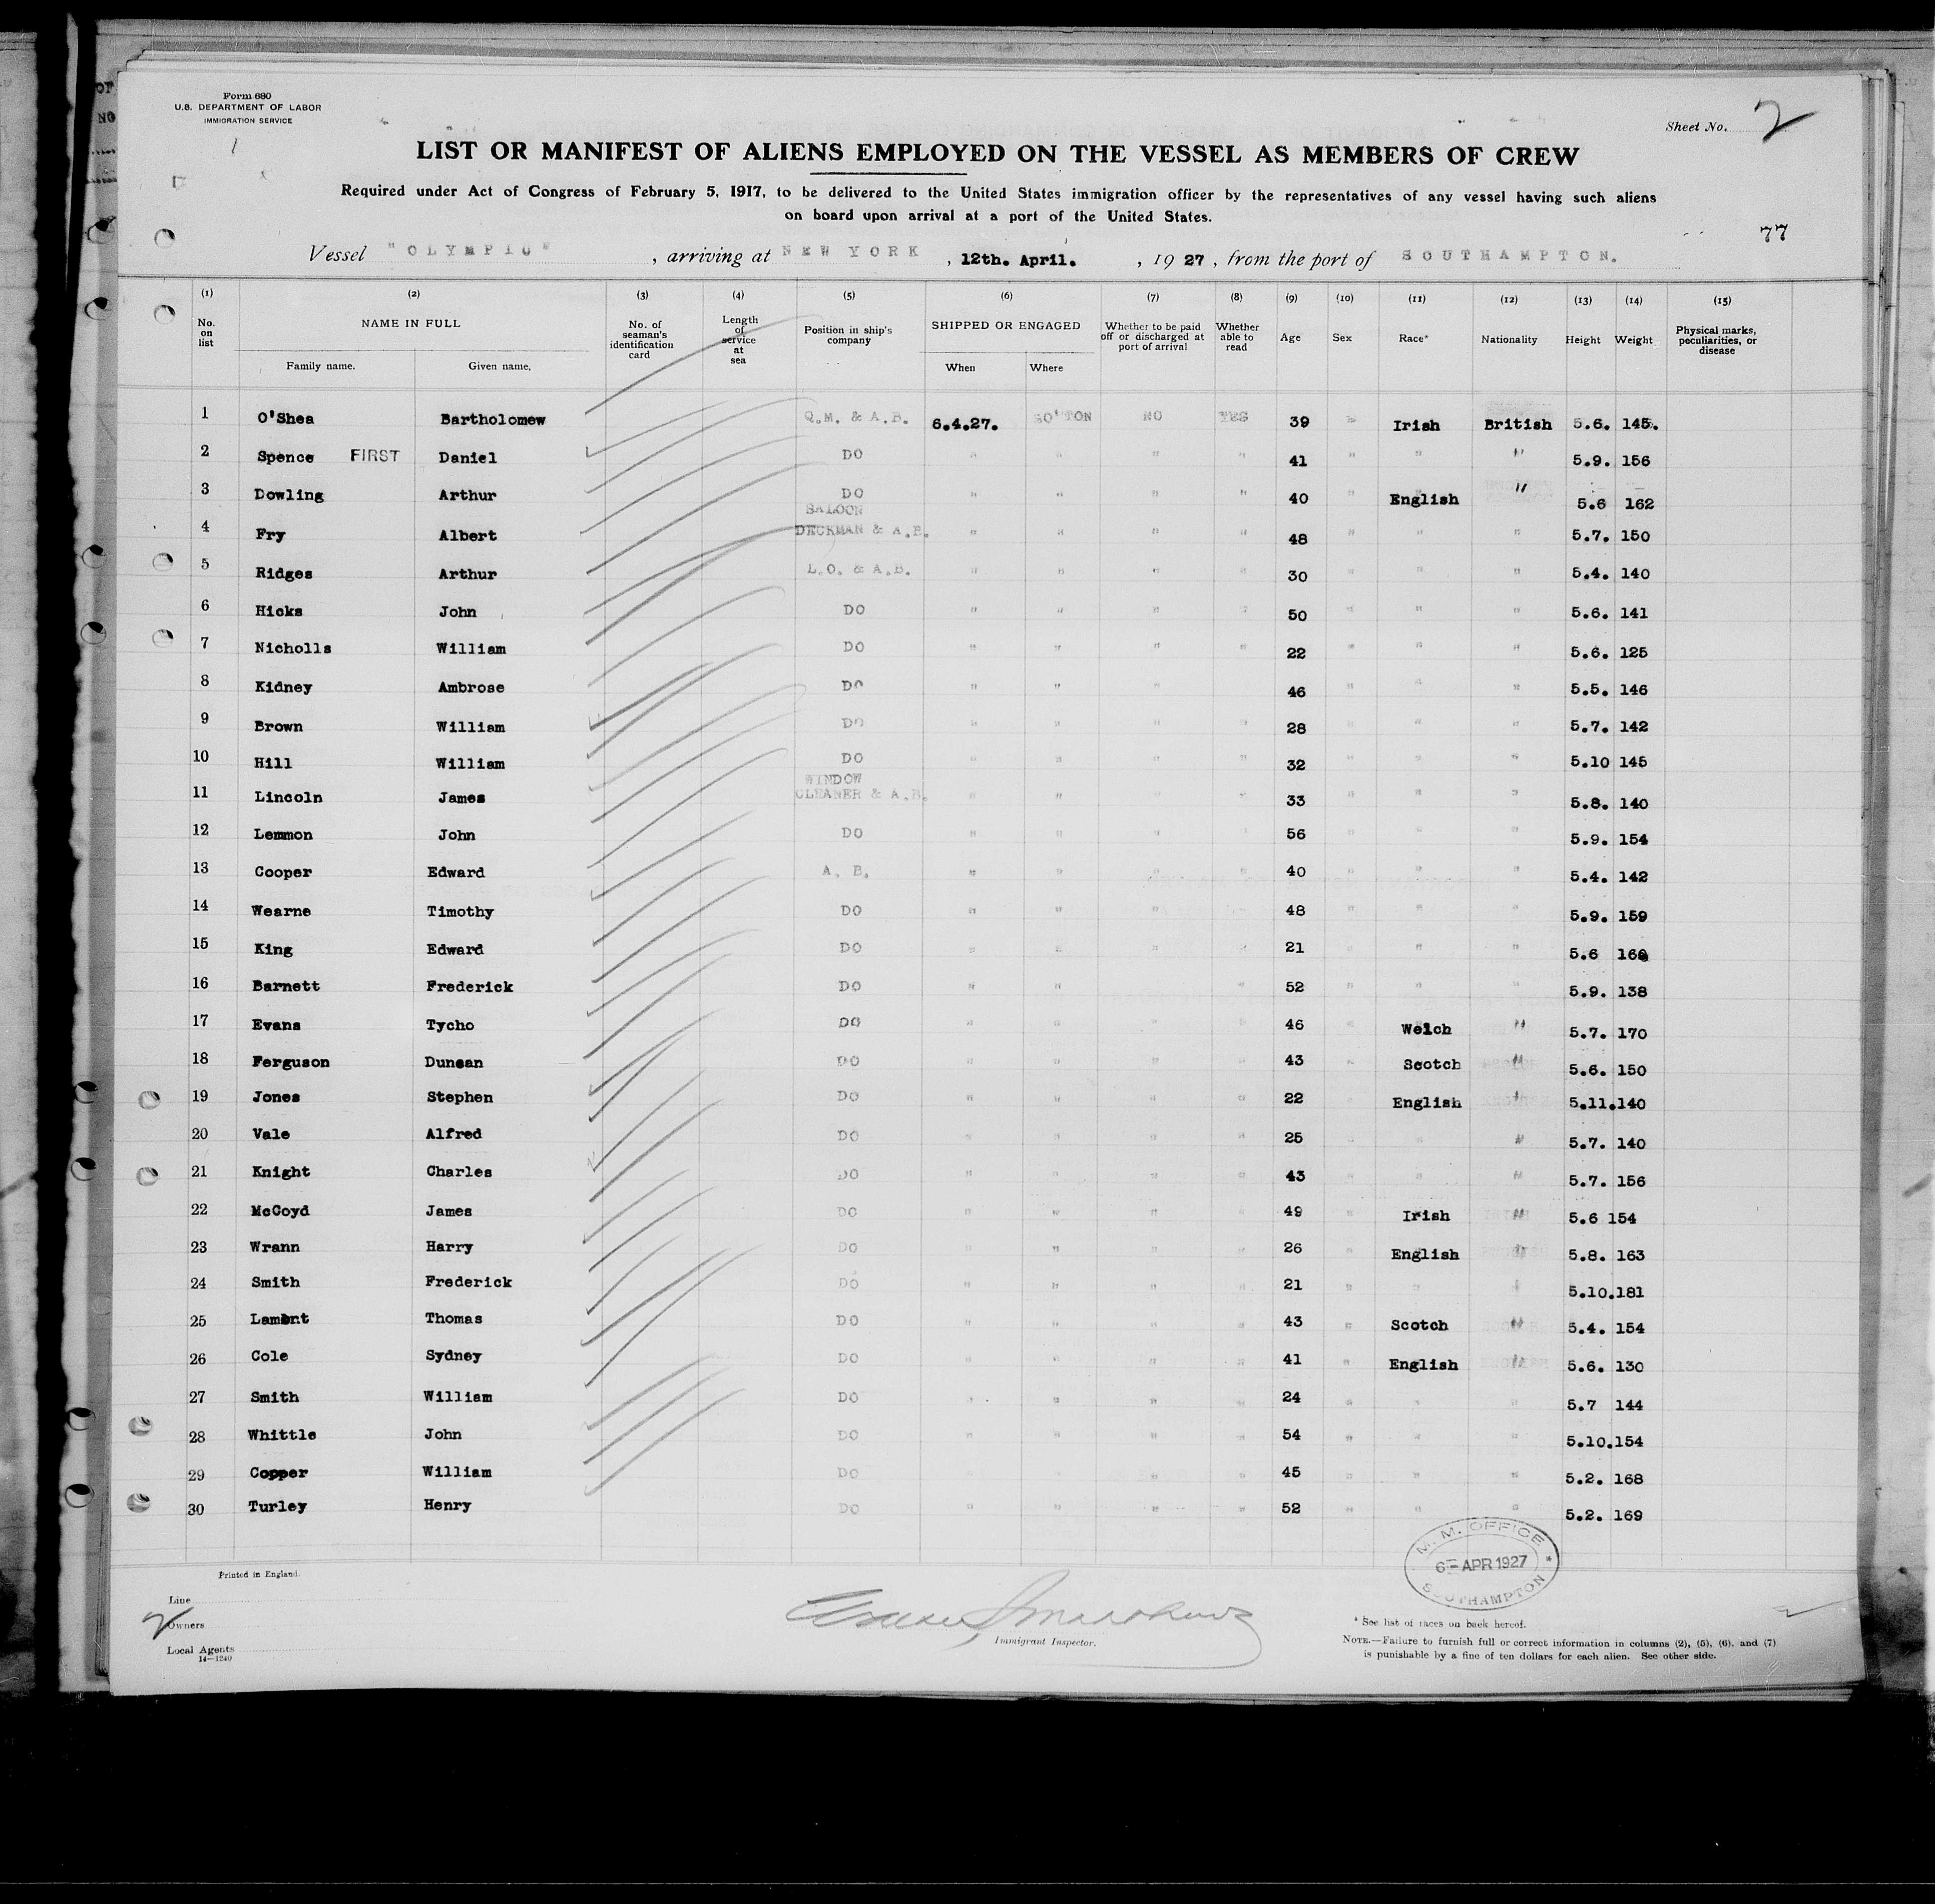 Form 680
U.S. DEPARTMENT OF LABOR
IMMIGRATION SERVICE
Sheet No. 2
LIST OR MANIFEST OF ALIENS EMPLOYED ON THE VESSEL AS MEMBERS OF CREW
Required under Act of Congress of February 5, 1917, to be delivered to the United States immigration officer by the representatives of any vessel having such aliens
on board upon arrival at a port of the United States.
77
Vessel "OLYMPIC", arriving at NEW YORK, 12th. April., 1927, from the port of SOUTHAMPTON.
(1) (2) (3) (4) (5) (6) (7) (8) (9) (10) (11) (12) (13) (14) (15)
No. on list NAME IN FULL Family name. Given name. No. of seaman's identification card Length of service at sea Position in ship's company SHIPPED OR ENGAGED When Where Whether to be paid off or discharged at port of arrival Whether able to read Age Sex Race* Nationality Height Weight Physical marks, peculiarities, or disease
1 O'Shea Bartholomew Q.M. & A.B. 6.4.27. SO'TON NO YES 39 Irish British 5.6. 145.
2 Spence FIRST Daniel DO " " " " 41 " " " 5.9. 156
3 Dowling Arthur DO " " " " 40 " English " 5.6 162
4 Fry Albert SALOON DECKMAN & A.B. " " " " 48 " " " 5.7. 150
5 Ridges Arthur L.O. & A.B. " " " " 30 " " " 5.4. 140
6 Hicks John DO " " " " 50 " " " 5.6. 141
7 Nicholls William DO " " " " 22 " " " 5.6. 125
8 Kidney Ambrose DO " " " " 46 " " " 5.5. 146
9 Brown William DO " " " " 28 " " " 5.7. 142
10 Hill William DO " " " " 32 " " " 5.10 145
11 Lincoln James WINDOW CLEANER & A.B. " " " " 33 " " " 5.8. 140
12 Lemmon John DO " " " " 56 " " " 5.9. 154
13 Cooper Edward A. B. " " " " 40 " " " 5.4. 142
14 Wearne Timothy DO " " " " 48 " " " 5.9. 159
15 King Edward DO " " " " 21 " " " 5.6
16 Barnett Frederick DO " " " " 52 " " " 5.9. 138
17 Evans Tycho DO " " " " 46 " Welch " 5.7. 170
18 Ferguson Duncan DO " " " " 43 " Scotch " 5.6. 150
19 Jones Stephen DO " " " " 22 " English " 5.11. 140
20 Vale Alfred DO " " " " 25 " " " 5.7. 140
21 Knight Charles DO " " " " 43 " " " 5.7. 156
22 McCoyd James DO " " " " 49 " Irish " 5.6 154
23 Wrann Harry DO " " " " 26 " English " 5.8. 163
24 Smith Frederick DO " " " " 21 " " " 5.10. 181
25 Lamont Thomas DO " " " " 43 " Scotch " 5.4. 154
26 Cole Sydney DO " " " " 41 " English " 5.6. 130
27 Smith William DO " " " " 24 " " " 5.7 144
28 Whittle John DO " " " " 54 " " " 5.10. 154
29 Copper William DO " " " " 45 " " " 5.2. 168
30 Turley Henry DO " " " " 52 " " " 5.2. 169
M. M. OFFICE
6 - APR 1927 *
SOUTHAMPTON
Printed in England.
Line
2
Owners
Local Agents
14—1240
Immigrant Inspector.
* See list of races on back hereof.
NOTE.—Failure to furnish full or correct information in columns (2), (5), (6), and (7)
is punishable by a fine of ten dollars for each alien. See other side.